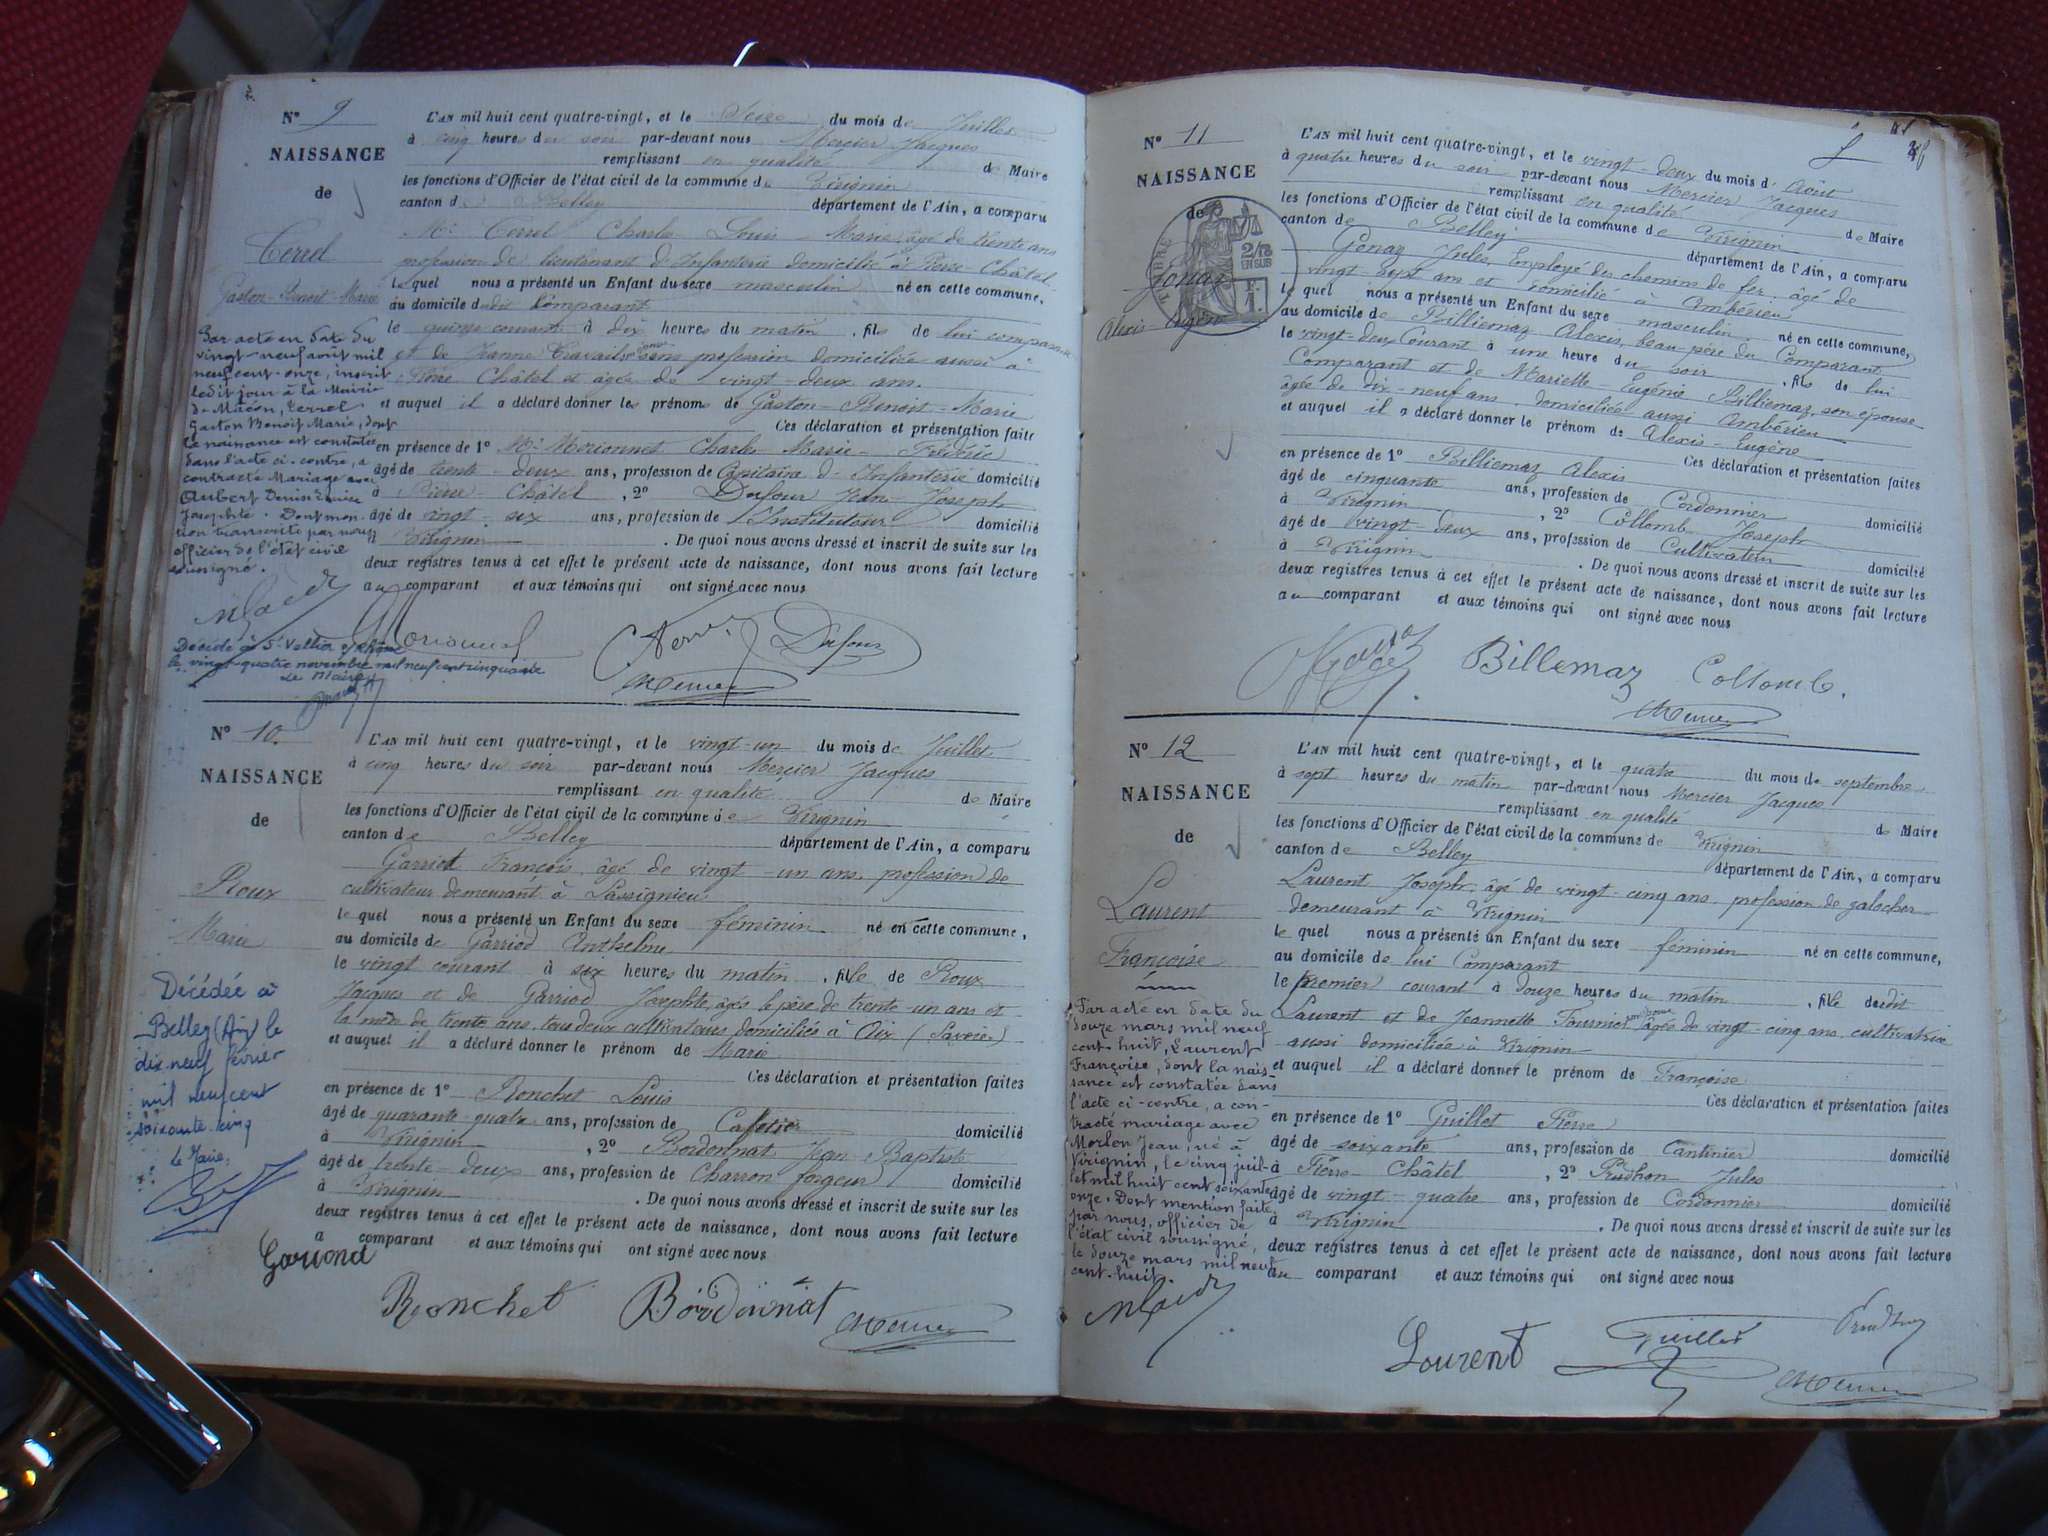 N° 9
NAISSANCE
de
Terrel
Gaston-Benoit-Marie
Par acte en date du
vingt-neuf avril mil
neuf cent onze, inscrit
ledit jour à la Mairie
de Macon, Terrel
Gaston Benoit Marie, dont
la naissance est constatée
dans l'acte ci-contre, a
contracté Mariage avec
Aubert Denise Louise
Josephte. Dont men-
tion transcrite par nous
officier de l'état civil
soussigné.
Décédé à St Vallier s/ Rhône
le vingt-quatre novembre mil neuf cent cinquante
Le Maire
L'AN mil huit cent quatre-vingt, et le Seize du mois de Juillet
à cinq heures du soir par-devant nous Mercier Jacques
remplissant en qualité de Maire
les fonctions d'Officier de l'état civil de la commune de Virignin
canton de Belley département de l'Ain, a comparu
Mr Terrel Charles Louis Marie, âgé de trente ans
profession de lieutenant d'Infanterie domicilié à Pierre-Châtel
lequel nous a présenté un Enfant du sexe masculin né en cette commune,
au domicile dudit comparant
le quinze courant à dix heures du matin, fils de lui comparant
et de Jeanne Travail sans profession domiciliée aussi à
Pierre Châtel et âgée de vingt-deux ans.
et auquel il a déclaré donner les prénoms de Gaston-Benoit-Marie
Ces déclaration et présentation faites
en présence de 1° Mr Morionnet Charles Marie-Frédéric
âgé de trente-deux ans, profession de Capitaine d'Infanterie domicilié
à Pierre-Châtel, 2° Dufour Jean-Joseph
âgé de vingt-six ans, profession de Instituteur domicilié
Virignin. De quoi nous avons dressé et inscrit de suite sur les
deux registres tenus à cet effet le présent acte de naissance, dont nous avons fait lecture
au comparant et aux témoins qui ont signé avec nous
Dufour
Mercier
N° 10.
NAISSANCE
de
Roux
Marie
Décédée à
Belley (Ain) le
dix neuf février
mil neuf cent
soixante cinq
Le Maire:
L'AN mil huit cent quatre-vingt, et le vingt-un du mois de Juillet
à cinq heures du soir par-devant nous Mercier Jacques
remplissant en qualité de Maire
les fonctions d'Officier de l'état civil de la commune de Virignin
canton de Belley département de l'Ain, a comparu
Garriod François, âgé de vingt-un ans, profession de
cultivateur demeurant à Lassignieu
lequel nous a présenté un Enfant du sexe féminin né en cette commune,
au domicile de Garriod Anthelme
le vingt courant à six heures du matin, fille de Roux
Jacques et de Garriod Josephte, âgés le père de trente-un ans et
la mère de trente ans, tous deux cultivateurs domiciliés à Aix (Savoie)
et auquel il a déclaré donner le prénom de Marie
Ces déclaration et présentation faites
en présence de 1° Ronchet Louis
âgé de quarante-quatre ans, profession de Cafetier domicilié
à Virignin, 2° Bordonnat Jean Baptiste
âgé de trente-deux ans, profession de Charron forgeur domicilié
à Virignin. De quoi nous avons dressé et inscrit de suite sur les
deux registres tenus à cet effet le présent acte de naissance, dont nous avons fait lecture
a comparant et aux témoins qui ont signé avec nous
Ronchet Bordonnat Mercier
N° 11
NAISSANCE
de
TIMBRE
2/10
EN SUS
Gonaz
Alexis-Eugène
L'AN mil huit cent quatre-vingt, et le vingt-deux du mois d'Août
à quatre heures du soir par-devant nous Mercier Jacques
remplissant en qualité de Maire
les fonctions d'Officier de l'état civil de la commune de Virignin
canton de Belley département de l'Ain, a comparu
Gonaz Jules, Employé des chemins de fer, âgé de
vingt-sept ans et domicilié à Ambérieu
lequel nous a présenté un Enfant du sexe masculin né en cette commune,
au domicile de Billiemaz Alexis, beau-père du Comparant
le vingt-deux Courant à une heure du soir, fils de lui
Comparant et de Mariette-Eugénie Billiemaz, son épouse
âgée de dix-neuf ans, domiciliée aussi Ambérieu
et auquel il a déclaré donner le prénom de Alexis-Eugène
Ces déclaration et présentation faites
en présence de 1° Billiemaz Alexis
âgé de cinquante ans, profession de Cordonnier domicilié
à Virignin, 2° Collomb Joseph
âgé de vingt-deux ans, profession de Cultivateur domicilié
à Virignin. De quoi nous avons dressé et inscrit de suite sur les
deux registres tenus à cet effet le présent acte de naissance, dont nous avons fait lecture
au comparant et aux témoins qui ont signé avec nous
Billemaz Collomb.
Mercier
N° 12
NAISSANCE
de
Laurent
Françoise
Par acte en date du
douze mars mil neuf
cent huit, Laurent
Françoise, dont la nais-
sance est constatée dans
l'acte ci-contre, a con-
tracté mariage avec
Morlon Jean, né à
Virignin, le cinq juil-
let mil huit cent soixante
onze. Dont mention faite
par nous, officier de
l'état civil soussigné,
le douze mars mil neuf
cent huit.
L'AN mil huit cent quatre-vingt, et le quatre du mois de septembre
à sept heures du matin par-devant nous Mercier Jacques
remplissant en qualité de Maire
les fonctions d'Officier de l'état civil de la commune de Virignin
canton de Belley département de l'Ain, a comparu
Laurent Joseph, âgé de vingt-cinq ans, profession de galocher
demeurant à Virignin
lequel nous a présenté un Enfant du sexe féminin né en cette commune,
au domicile de lui Comparant
le premier courant à douze heures du matin, fille dudit
Laurent et de Jeannette Fournier âgée de vingt-cinq ans, cultivatrice
aussi domiciliée à Virignin
et auquel il a déclaré donner le prénom de Françoise
Ces déclaration et présentation faites
en présence de 1° Guillet Pierre
âgé de soixante ans, profession de Cantinier domicilié
à Pierre-Châtel, 2° Prudhon Jules
âgé de vingt-quatre ans, profession de Cordonnier domicilié
à Virignin. De quoi nous avons dressé et inscrit de suite sur les
deux registres tenus à cet effet le présent acte de naissance, dont nous avons fait lecture
au comparant et aux témoins qui ont signé avec nous
Laurent Guillet Prudhon
Mercier